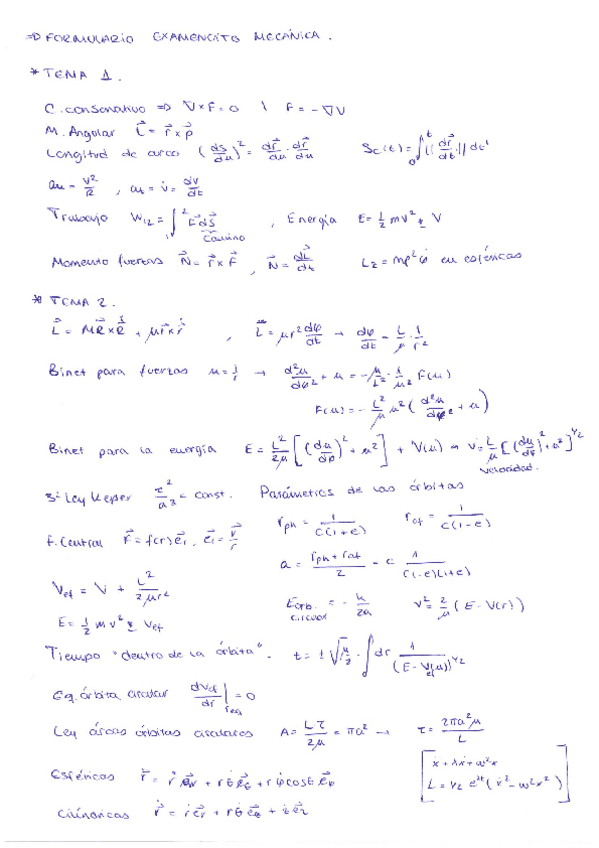 ⇒ FORMULARIO EXAMENCITO MECÁNICA.
* TEMA 1.
C. conservativo ⇒ ∇×F=0 \ F=-∇V
M. Angular L⃗ = r⃗ × p⃗
Longitud de arco (ds/du)² = dr⃗/du · dr⃗/du Sc(t) = ∫₀ᵗ ||dr⃗/dt'|| dt'
an = v²/R , at = v̇ = dv/dt
Trabajo W12 = ∫₁² F⃗ dS⃗ camino , Energía E = ½ mv² ± V
Momento fuerzas N⃗ = r⃗ × F⃗ , N⃗ = dL⃗/dt Lz = mρ²φ̇ en esféricas
* TEMA 2.
L⃗ = MR⃗×Ṙ⃗ + μr⃗×ṙ⃗ , L⃗ = μr² dφ/dt → dφ/dt = L/μ · 1/r²
Binet para fuerzas u = 1/r → d²u/dφ² + u = -μ/L² · 1/u² F(u)
F(u) = -L²/μ u² (d²u/dφ² + u)
Binet para la energía E = L²/2μ [(du/dφ)² + u²] + V(u) → v = L/μ [(du/dφ)² + u²]^1/2 velocidad.
3ª Ley Kepler τ²/a³ = const. Parámetros de las órbitas
rph = 1/C(1+e) raf = 1/C(1-e)
f. Central F⃗ = f(r) e⃗r, e⃗r = r⃗/r
a = (rph + raf)/2 = C 1/C(1-e)(1+e)
Vef = V + L²/2μr² Eorb. circular = -k/2a v² = 2/μ (E - V(r))
E = ½ m v² ± Vef
Tiempo "dentro de la órbita". t = ± √(μ/2) · ∫ dr 1/(E - Vef(r))^1/2
Eq. órbita circular dVef/dr |req = 0
Ley áreas órbitas circulares A = Lτ/2μ = πa² → τ = 2πa²μ/L
Esféricas ṙ⃗ = ṙ e⃗r + rθ̇ e⃗θ + rφ̇ cosθ e⃗φ
[ẍ + λẋ + ω²x
L = 1/2 e^λt (ẋ² - ω²x²)]
Cilíndricas ṙ⃗ = ṙ e⃗r + rθ̇ e⃗θ + ż e⃗z